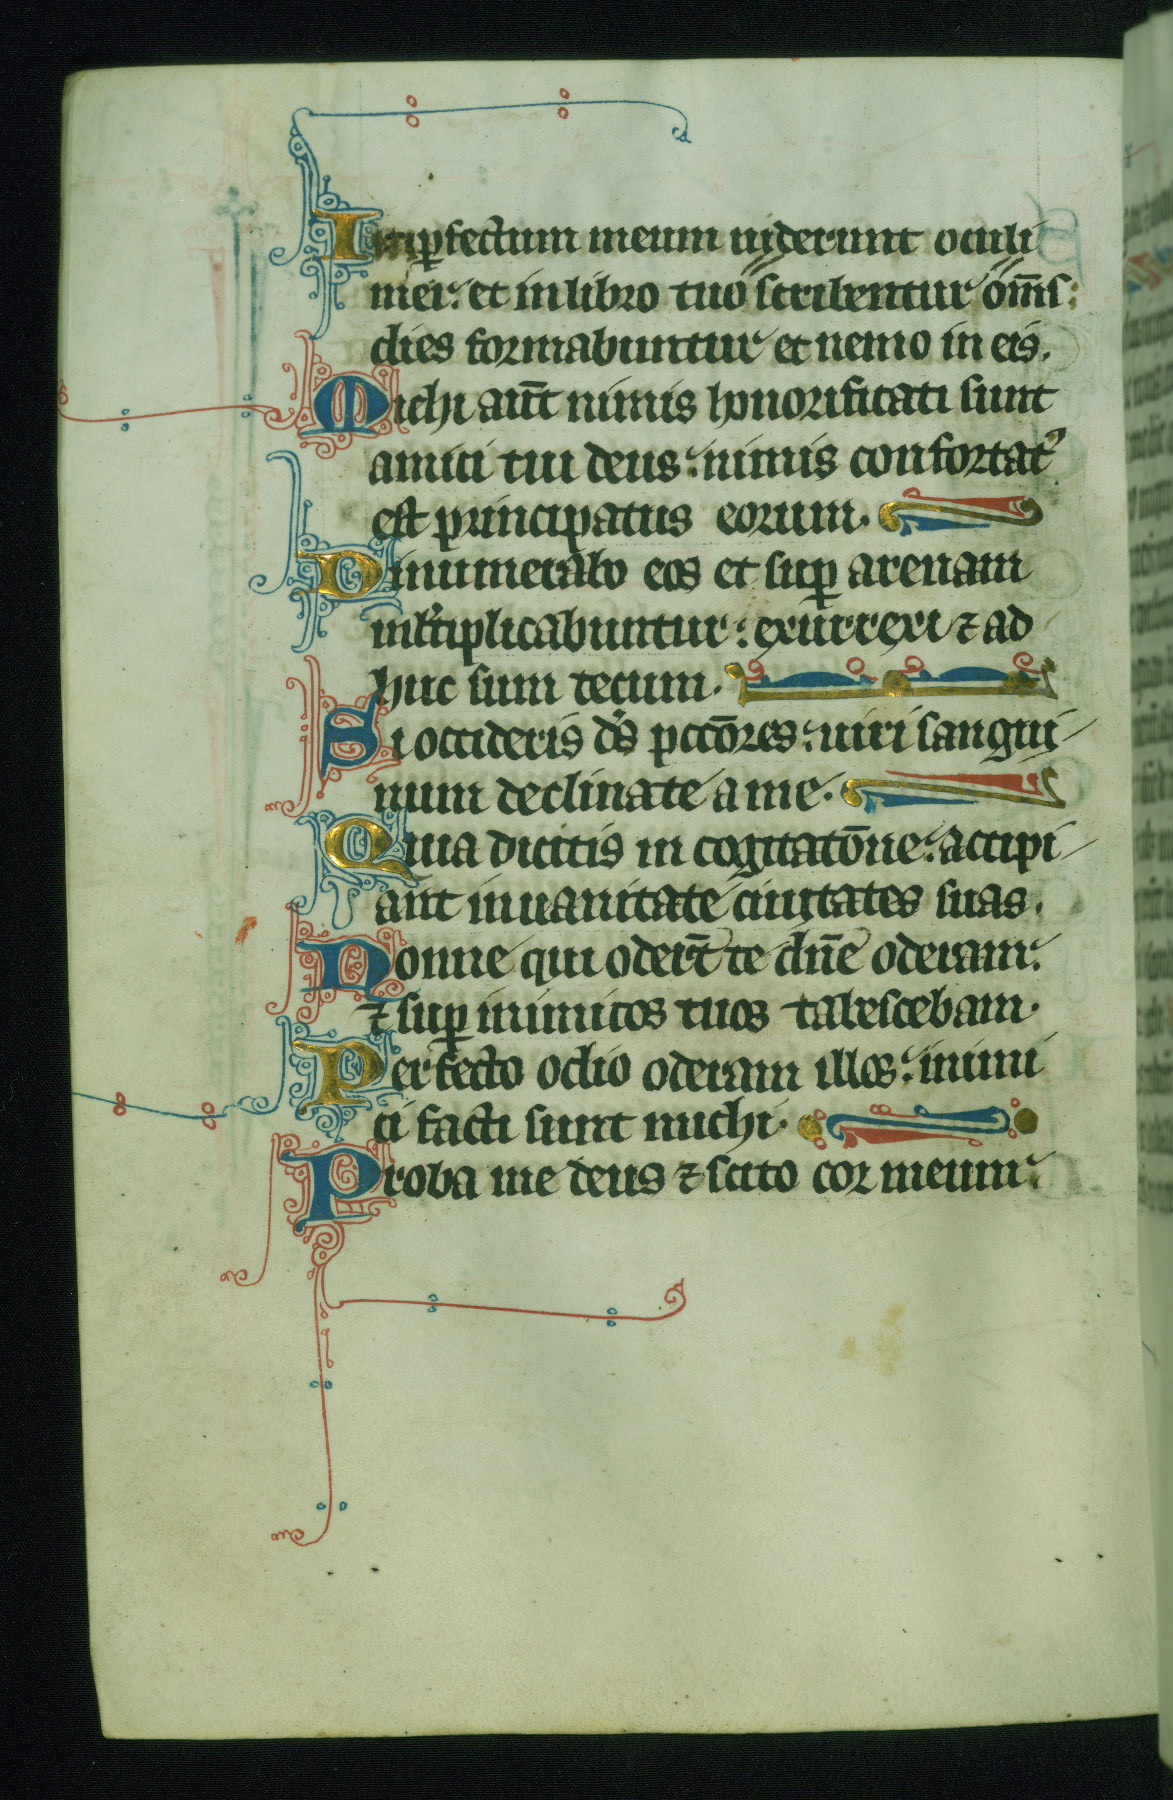 Imꝑfectum meum uiderunt oculi
mei: et in libro tuo scribentur om̄s:
dies formabuntur et nemo in eis.
Michi aut̄ nimis honorificati sunt
amici tui deus: nimis confortatꝰ
est principatus eorum.
Dinumerabo eos et suꝑ arenam
ml̄tiplicabuntur: exurrexi ⁊ ad
huc sum tecum.
Si occideris ds̄ pctōres: uiri sangui
num declinate a me.
Quia dicitis in cogitatōne: accipi
ant in uanitate ciuitates suas.
Nonne qui oder̄t te dn̄e oderam:
⁊ suꝑ inimicos tuos tabescebam.
Perfecto odio oderam illos: inimi
ci facti sunt michi.
Proba me deus ⁊ scito cor meum: